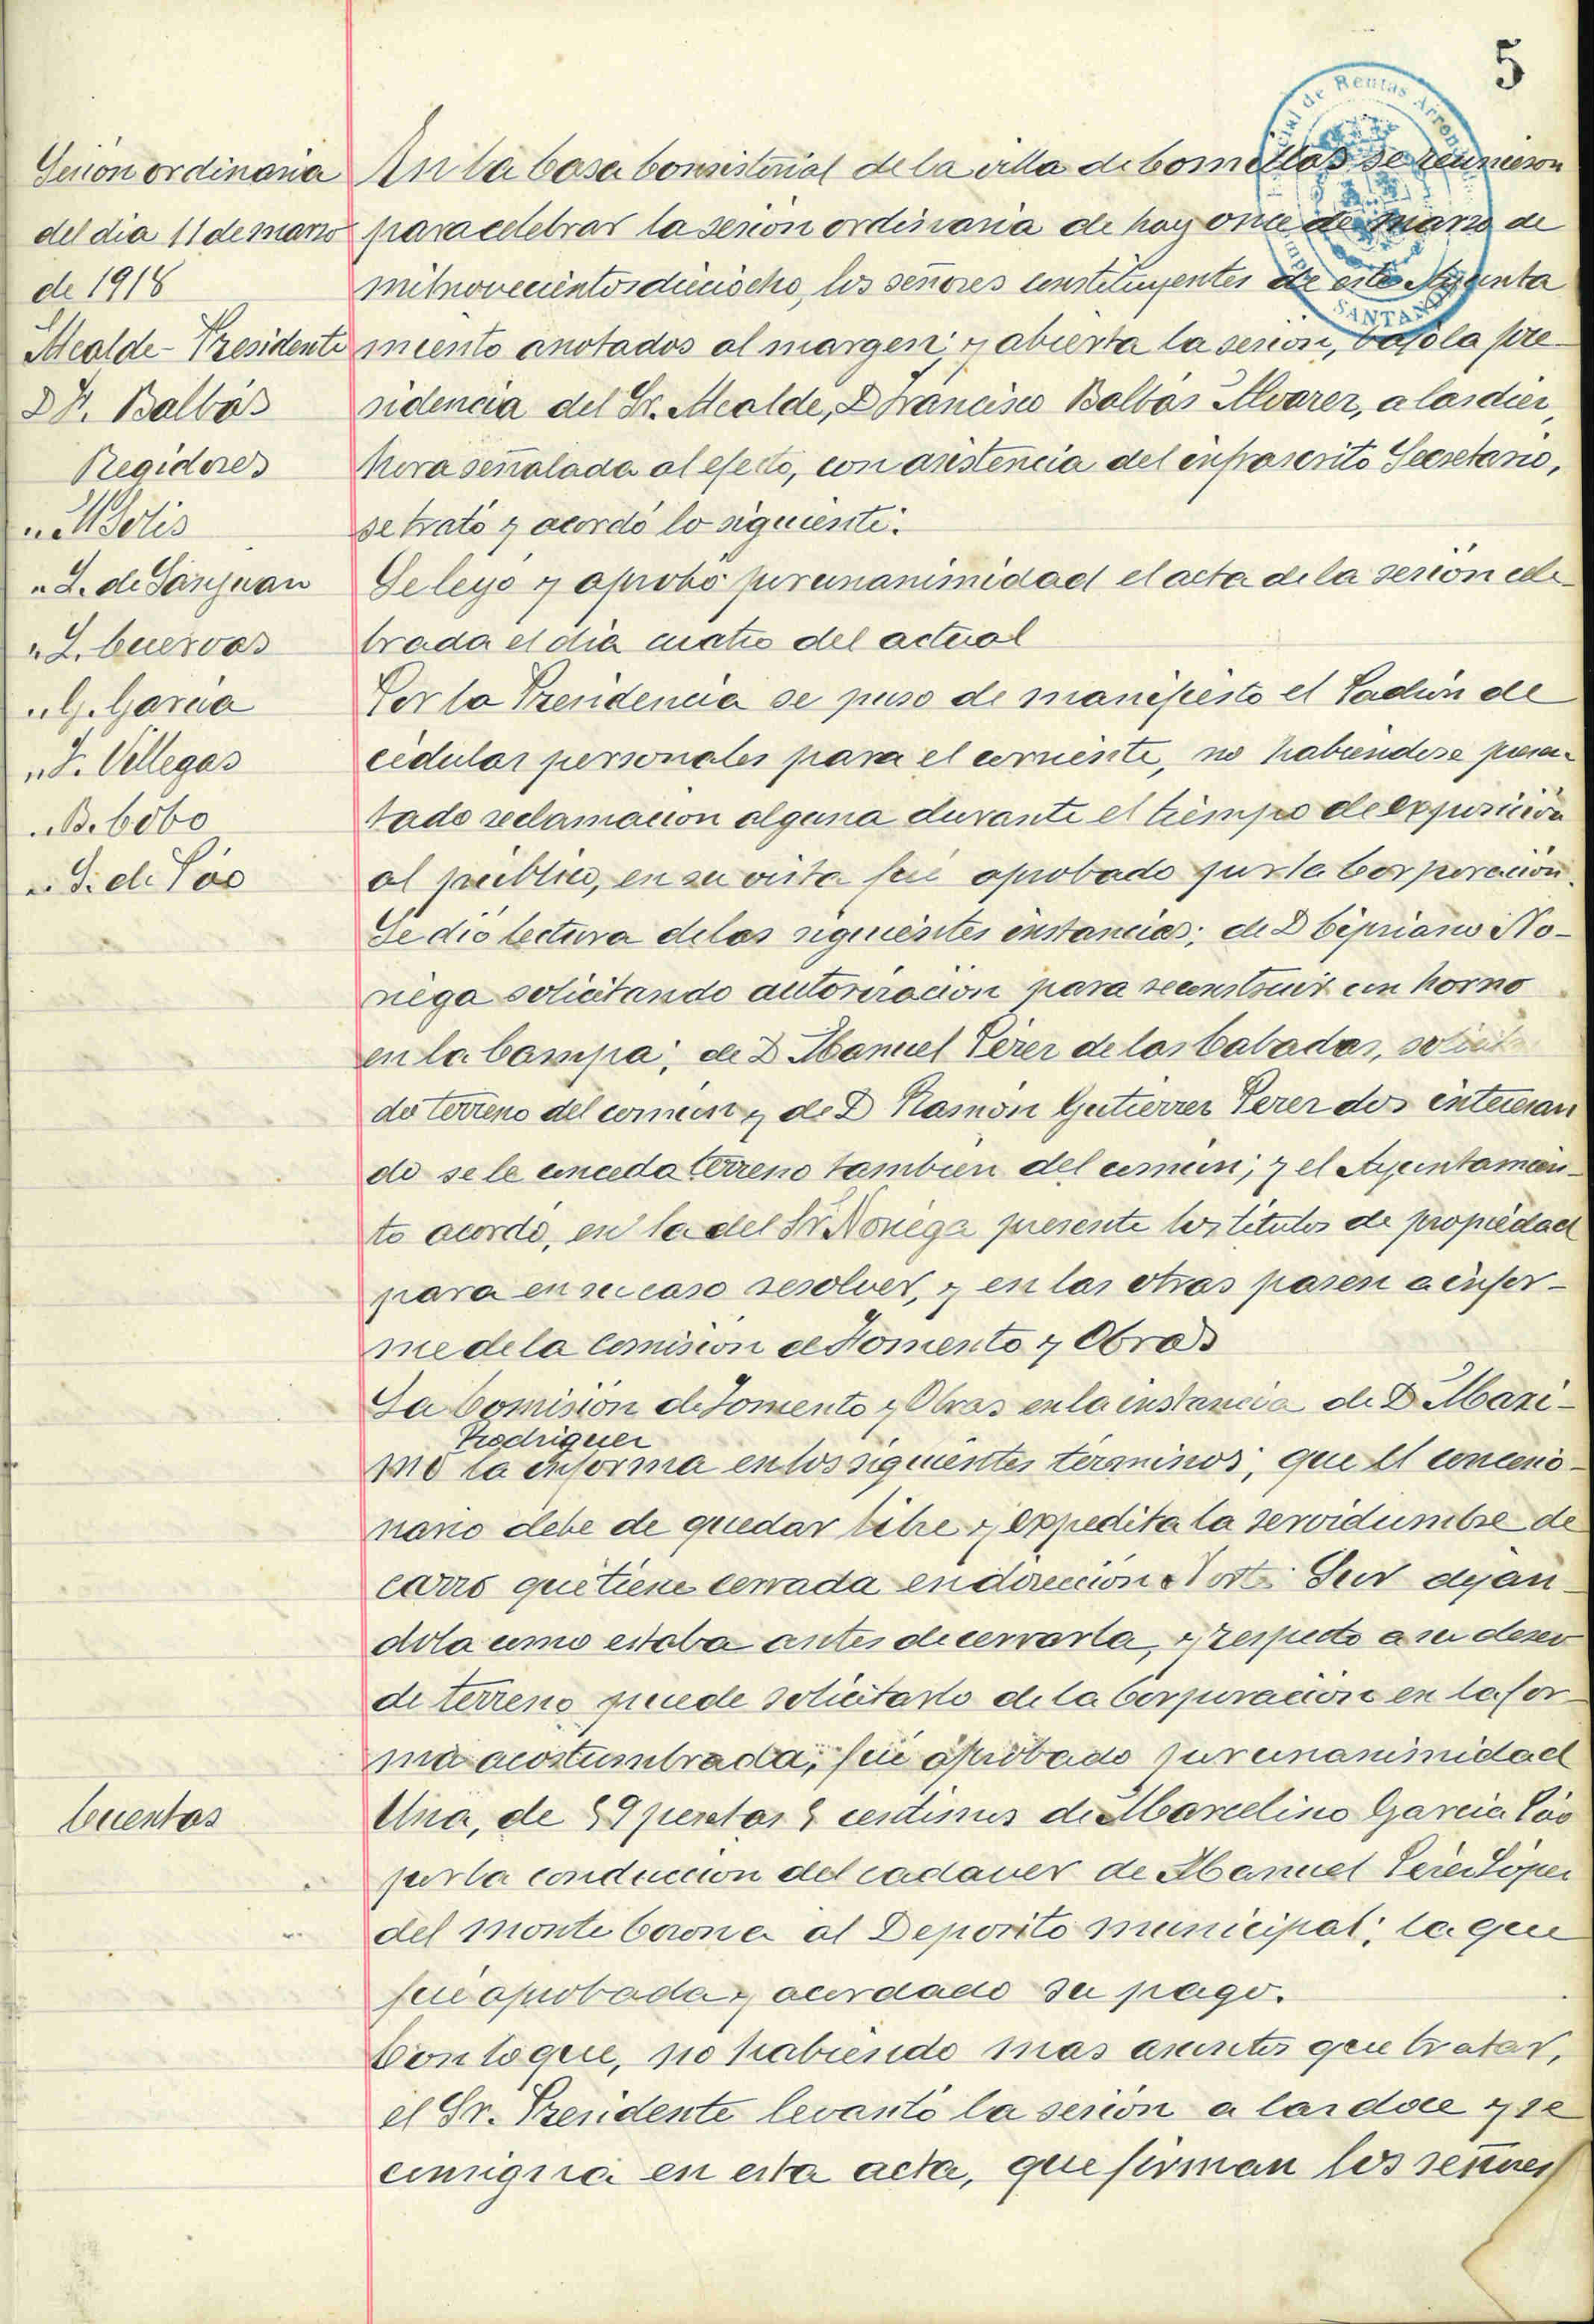 5
Sesión ordinaria
del dia 11 de marzo
de 1918
Alcalde-Presidente
D F. Balbás
Regidores
" M Solis
" L. de Sanjuan
" L. Cuervas
" G. Garcia
" F. Villegas
" B. Cobo
" S. de Póo
Cuentas
En la Casa Consistorial de la villa de Comillas se reunieron
para celebrar la sesión ordinaria de hoy once de marzo de
mil novecientos dieciocho, los señores constituyentes de este Ayunta
miento anotados al margen; y abierta la sesión, bajo la pre-
sidencia del Sr. Alcalde, D Francisco Balbás Alvarez, a las diez,
hora señalada al efecto, con asistencia del infrascrito Secretario,
se trató y acordó lo siguiente:
Se leyó y aprobó por unanimidad el acta de la sesión cele-
brada el dia cuatro del actual
Por la Presidencia se puso de manifiesto el Padrón de
cédulas personales para el corriente, no habiendose presen-
tado reclamacion alguna durante el tiempo de exposición
al público, en su vista fué aprobado por la Corporación.
Se dió lectura de las siguientes instancias; de D Cipriano No-
riega solicitando autorización para reconstruir un horno
en la Campa; de D Manuel Pérez de las Cabadas, solicita
do terreno del comun y de D Ramón Gutierrez Perez dos interesan
do se le conceda terreno tambien del comun; y el Ayuntamien-
to acordó, en la del Sr Noriega presente los titulos de propiedad
para en su caso resolver, y en las otras pasen a infor-
me de la Comisión de Fomento y Obras
La Comisión de Fomento y Obras en la instancia de D Maxi-
Rodriguez
mo la informa en los siguientes términos; que el concesio-
nario debe de quedar libre y expedita la servidumbre de
carro que tiene cerrada en dirección Norte Sur dejan-
dola como estaba antes de cerrarla, y respecto a su deseo
de terreno puede solicitarlo de la Corporación en la for-
ma acostumbrada; fué aprobado por unanimidad
Una, de 59 pesetas 5 centimos de Marcelino Garcia Póo
por la conducción del cadaver de Manuel Pérez López
del monte Corona al Deposito municipal; la que
fué aprobada y acordado su pago.
Con lo que, no habiendo mas asuntos que tratar,
el Sr. Presidente levantó la sesión a las doce y se
consigna en esta acta, que firman los señores